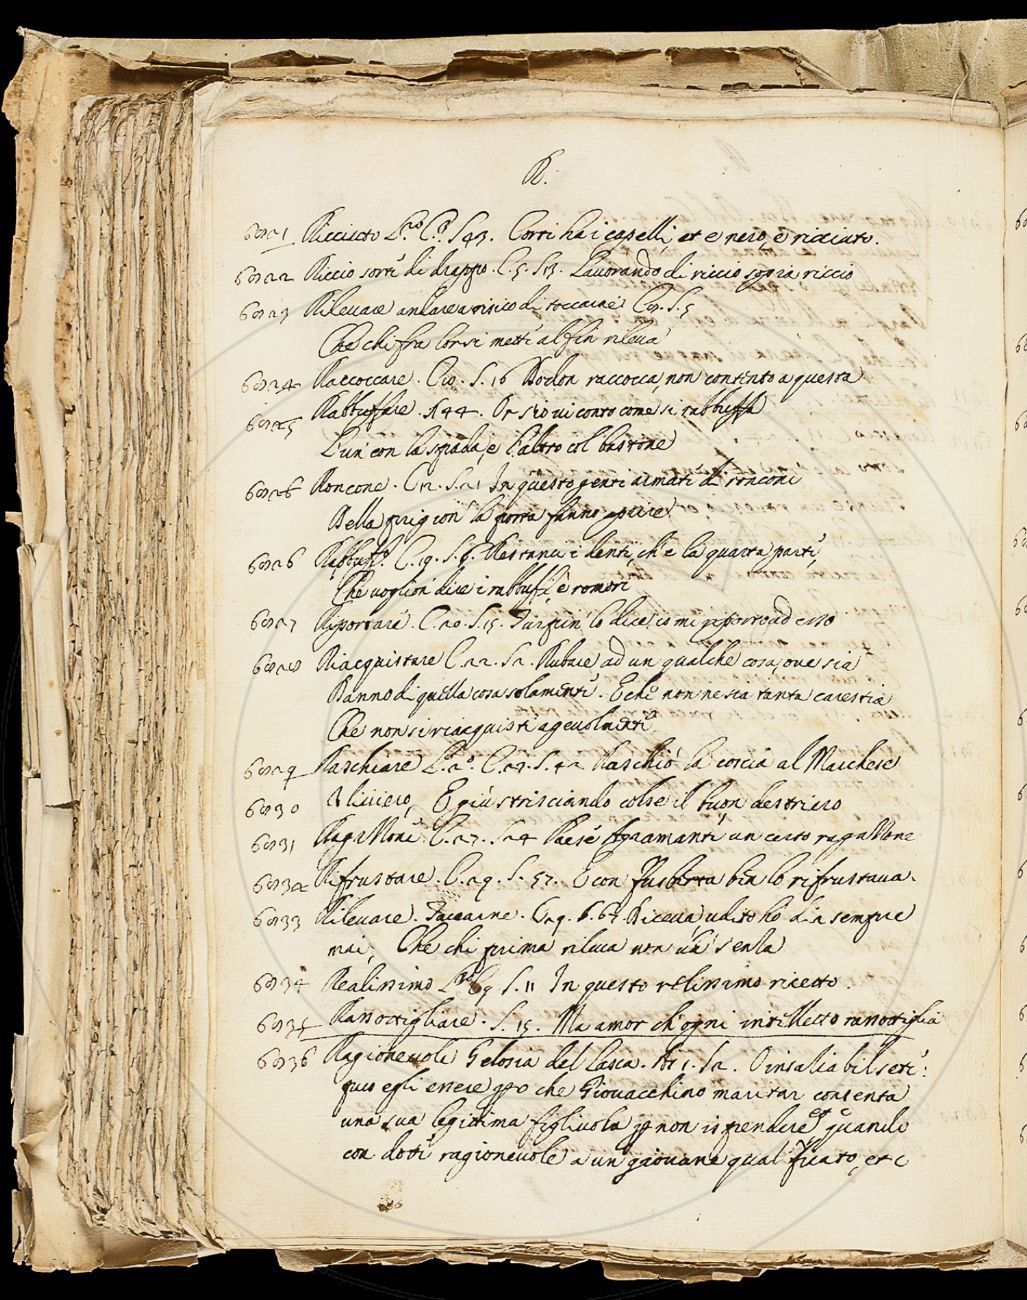 R.
6921 Ricciuto L.º C.º S 43. Corti ha i capelli, et è nero, e ricciuto.
6922 Riccio sorte di drappo. C. 5. S. Lavorando di riccio sopra riccio
6923 Rilevare andare a risico di toccarne C. S. 5
Che chi fra lor si mette al fin rileva
6924 Raccoccare. C. S. 16 Rodon raccocca, non contento a questa
6925 Rabbuffare. S 44. Or s'io vi conto come si rabbuffa
L'un con la spada, e l'altro col bastone
6926 Roncone. C 12. S. 21 In questo genti armati di ronconi
Della prigion la porta fanno aprire
6926 C. 19. S. 6. Restanci i denti, ch'è la quarta parte,
Che voglion dire i rabbuffi, e romori
6927 Riportare. C. 20. S. 15. Turpin lo dice, io mi riporto ad esso
6928 Riacquistare C. 22. S 2 Rubare ad un qualche cosa, ove sia
Danno di quella cosa solamente. E che non ne sia tanta carestia
Che non si riacquisti agevolmente
6929 Raschiare L.º 2.º C. 23. S. 42 Raschiò la coscia al Marchese
6930 Uliviero, E giù strisciando colse il buon destriero
6931 Ragattone. C. 27. S. 24 Paese Agramante un certo ragattone
6932 Rifrustare. C. 29. S. 57. E con Fusberta ben lo rifrustava.
6933 Rilevare. Toccarne. C. 29. S. 64. Diceva udito ho dir sempre
mai, Che chi prima rileva non va senza
6934 Realissimo L. C 9 S. 11 In questo relissimo ricetto.
6935 Rassottigliare. S. 15. Ma amor ch'ogni intelletto rassottiglia
6936 Ragionevole Gelosia del Lasca. At 1. S 2. O insaliabil seti:
può egli essere però che Giovacchino maritar consenta
una sua legittima figliuola per non ispendere et quando
con dote ragionevole a un giovane qualificato, etc